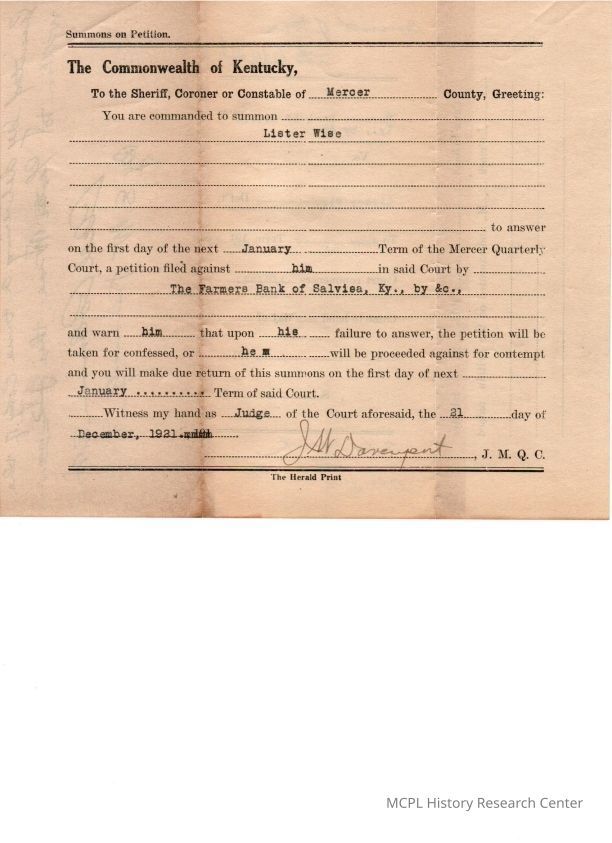 Summons on Petition.
The Commonwealth of Kentucky,
To the Sheriff, Coroner or Constable of Mercer County, Greeting:
You are commanded to summon
Lister Wise
to answer
on the first day of the next January Term of the Mercer Quarterly
Court, a petition filed against him in said Court by
The Farmers Bank of Salvisa, Ky., by &c.,
and warn him that upon his failure to answer, the petition will be
taken for confessed, or he will be proceeded against for contempt
and you will make due return of this summons on the first day of next
January .......... Term of said Court.
Witness my hand as Judge of the Court aforesaid, the 21 day of
December, 1921.
J W Davenport, J. M. Q. C.
The Herald Print
MCPL History Research Center